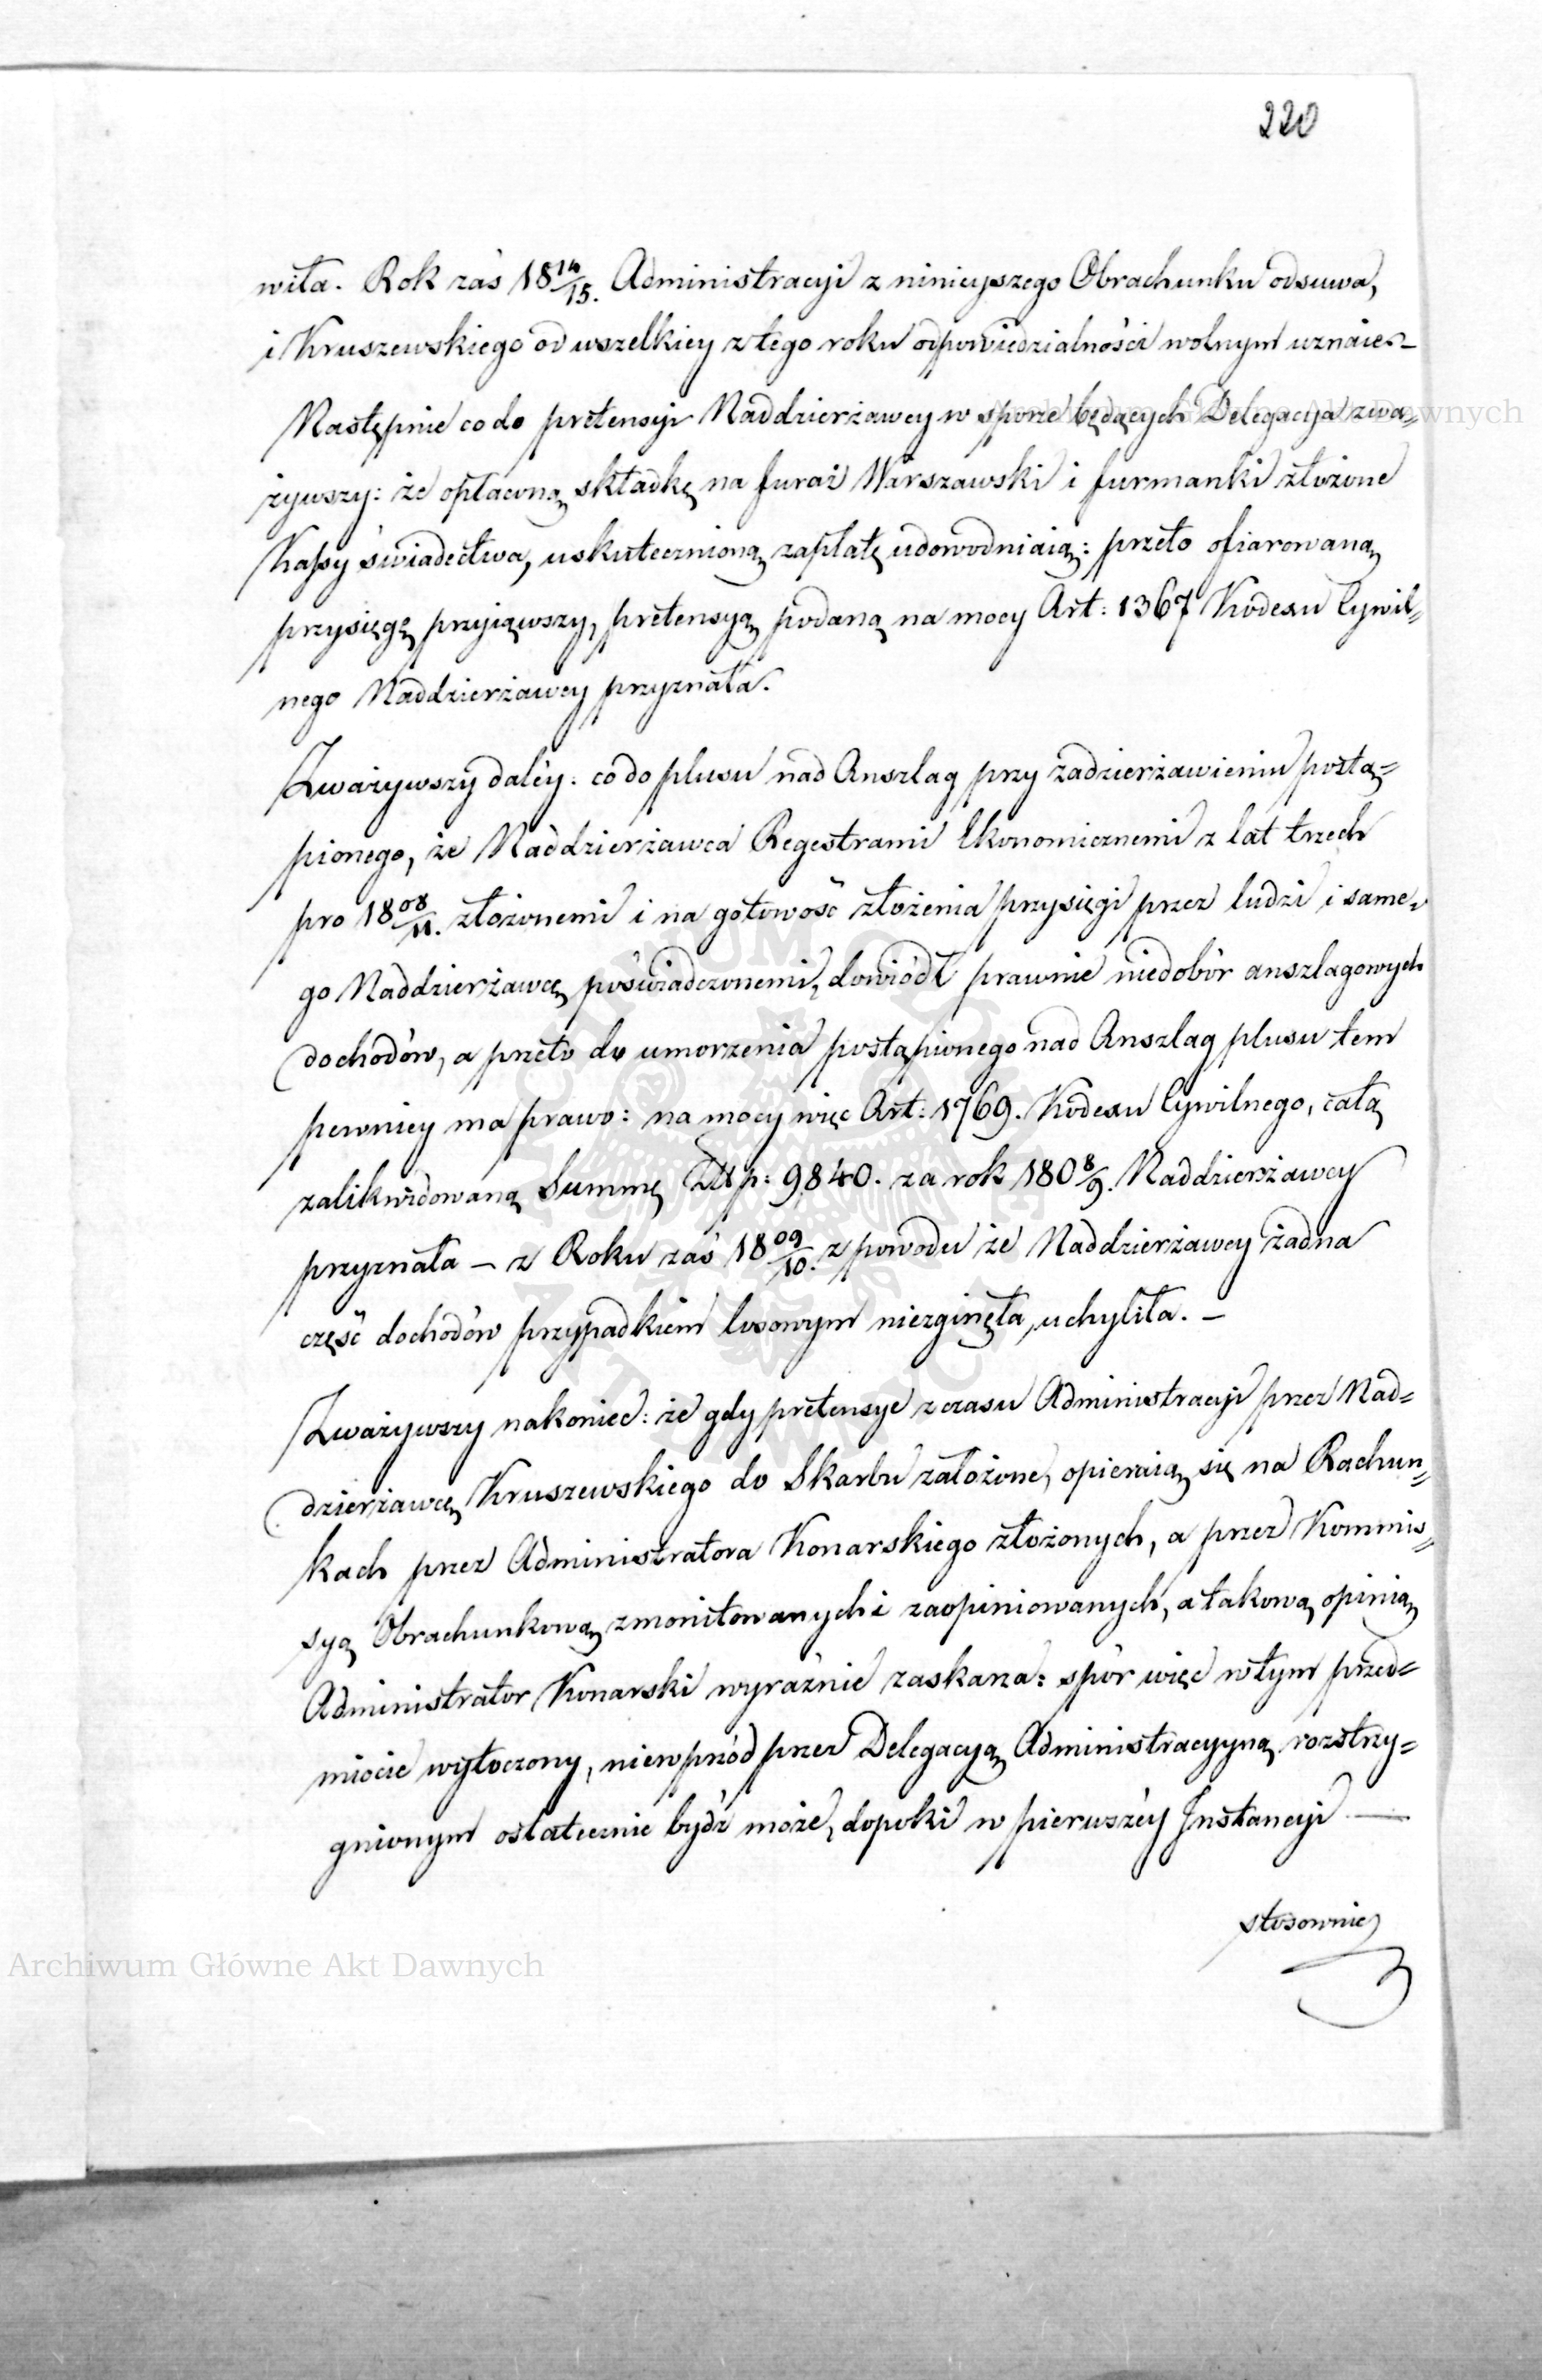 220
wiła. Rok zaś 18 14/15. Administracyi z ninieyszego Obrachunku odsuwa,
i Kruszewskiego od wszelkiey z tego roku odpowiedzialności wolnym uznaie.–
Następnie co do pretensyi Naddzierżawcy w sporze będących Delegacyja zwa=
żywszy: że opłaconą składkę na furaż Warszawski i furmanki złożone
Kassy świadectwa, uskutecznioną zapłatę udowodniaią: przeto ofiarowaną
przysięgę przyiąwszy, pretensyą podaną na mocy Art: 1367 Kodexu Cywil=
nego Naddzierżawcy przyznała.
Zważywszy daléy: co do plusu nad Anszlag przy zadzierżawieniu postą=
pionego, że Naddzierżawca Regestrami Ekonomicznemi z lat trzech
pro 18 08/11. złożonemi i na gotowość złożenia przysięgi przez ludzi i same=
go Naddzierżawcę poświadczonemi, dowiódł prawnie niedobór anszlagowych
dochodów, a przeto do umorzenia postąpionego nad Anszlag plusu tem
pewniey ma prawo: na mocy więc Art: 1769. Kodexu Cywilnego, całą
zalikwidowaną Summę Złłp: 9840. za rok 180 8/9. Naddzierżawcy
przyznała – z Roku zaś 18 09/10. z powodu że Naddzierżawcy żadna
część dochodów przypadkiem losowym niezginęła, uchyliła. –
Zważywszy nakoniec: że gdy pretensye z czasu Administracyi przez Nad=
dzierżawcę Kruszewskiego do Skarbu założone, opieraią się na Rachun=
kach przez Administratora Konarskiego złożonych, a przez Kommis=
syą Obrachunkową zmonitowanych i zaopiniowanych, a takową opinią
Administrator Konarski wyraźnie zaskarza: spór więc w tym przed=
miocie wytoczony, niewprzód przez Delegacyą Administracyyną rozstrzy=
gnionym ostatecznie bydź może, dopoki w pierwszéy Instancyi —
stosownie
Archiwum Główne Akt Dawnych